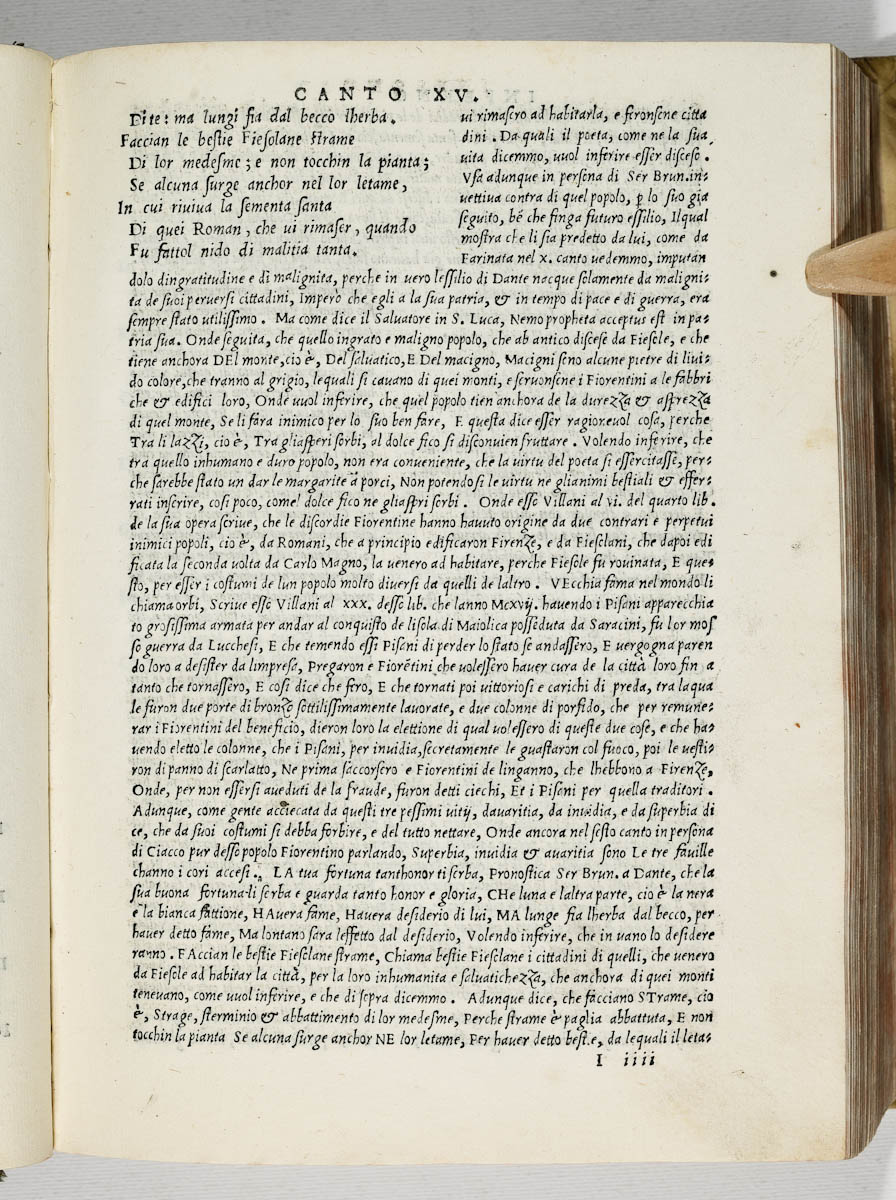 CANTO XV.
Di te: ma lungi fia dal becco lherba.
Faccian le bestie Fiesolane strame
Di lor medesme; e non tocchin la pianta;
Se alcuna surge anchor nel lor letame,
In cui riviva la sementa santa
Di quei Roman, che ui rimaser, quando
Fu fattol nido di malitia tanta.
ui rimasero ad habitarla, e feronsene citta
dini. Da quali il poeta, come ne la sua
uita dicemmo, uuol inferire esser disceso.
Vsa adunque in persona di Ser Brun. in-
uettiua contra di quel popolo, ꝑ lo suo gia
seguito, bẽ che finga futuro essilio, Ilqual
mostra che li sia predetto da lui, come da
Farinata nel x. canto uedemmo, imputan
dolo dingratitudine e di malignita, perche in uero lessilio di Dante nacque solamente da maligni-
ta de suoi peruersi cittadini, Imperò che egli a la sua patria, & in tempo di pace e di guerra, era
sempre stato utilissimo. Ma come dice il Saluatore in S. Luca, Nemo propheta acceptus est in pa-
tria sua. Onde seguita, che quello ingrato e maligno popolo, che ab antico discese da Fiesole, e che
tiene anchora DEl monte, cio è, Del saluatico, E Del macigno, Macigni sono alcune pietre di liui-
do colore, che tranno al grigio, lequali si cauano di quei monti, e seruonsene i Fiorentini a le fabbri
che & edifici loro, Onde uuol inferire, che quel popolo tien anchora de la durezza & asprezza
di quel monte, Se li fara inimico per lo suo ben fare, E questa dice esser ragioneuol cosa, perche
Tra li lazzi, cio è, Tra gliasperi sorbi, al dolce fico si disconuien fruttare. Volendo inferire, che
tra quello inhumano e duro popolo, non era conueniente, che la uirtu del poeta si essercitasse, per-
che sarebbe stato un dar le margarite a porci, Non potendosi le uirtu ne glianimi bestiali & effer-
rati inserire, cosi poco, come'l dolce fico ne gliaspri sorbi. Onde esso Villani al vi. del quarto lib.
de la sua opera scriue, che le discordie Fiorentine hanno hauuto origine da due contrari e perpetui
inimici popoli, cio è, da Romani, che a principio edificaron Firenze, e da Fiesolani, che dapoi edi
ficata la seconda volta da Carlo Magno, la uenero ad habitare, perche Fiesole fu rouinata, E que-
sto, per esser i costumi de lun popolo molto diuersi da quelli de laltro. VEcchia fama nel mondo li
chiama orbi, Scriue esso Villani al xxx. desso lib. che lanno Mcxvij. hauendo i Pisani apparecchia
to grosissima armata per andar al conquisto de lisola di Maiolica posseduta da Saracini, fu lor mos
so guerra da Lucchesi, E che temendo essi Pisani di perder lo stato se andassero, E uergogna paren
do loro a desister da limpresa, Pregaron e Fiorẽtini che uolessero hauer cura de la città loro fin a
tanto che tornassero, E cosi dice che fero, E che tornati poi uittoriosi e carichi di preda, tra laqua
le furon due porte di bronzo sottilissimamente lauorate, e due colonne di porfido, che per remune-
rar i Fiorentini del beneficio, dieron loro la elettione di qual uolessero di queste due cose, e che ha-
uendo eletto le colonne, che i Pisani, per inuidia, secretamente le guastaron col fuoco, poi le uesti-
ron di panno di scarlatto, Ne prima saccorsero e Fiorentini de linganno, che lhebbono a Firenze,
Onde, per non essersi aueduti de la fraude, furon detti ciechi, Et i Pisani per quella traditori.
Adunque, come gente acciecata da questi tre pessimi uitij, dauaritia, da inuidia, e da superbia di
ce, che da suoi costumi si debba forbire, e del tutto nettare, Onde ancora nel sesto canto in persona
di Ciacco pur desso popolo Fiorentino parlando, Superbia, inuidia & auaritia sono Le tre fauille
channo i cori accesi. LA tua fortuna tanthonor ti serba, Pronostica Ser Brun. a Dante, che la
sua buona fortuna li serba e guarda tanto honor e gloria, CHe luna e laltra parte, cio è la nera
e la bianca fattione, HAuera fame, Hauera desiderio di lui, MA lunge fia lherba dal becco, per
hauer detto fame, Ma lontano sara leffetto dal desiderio, Volendo inferire, che in uano lo desidere
ranno. FAccian le bestie Fiesolane strame, Chiama bestie Fiesolane i cittadini di quelli, che uenero
da Fiesole ad habitar la città, per la loro inhumanita e saluatichezza, che anchora di quei monti
teneuano, come uuol inferire, e che di sopra dicemmo. Adunque dice, che facciano STrame, cio
è, Strage, sterminio & abbattimento di lor medesme, Perche strame è paglia abbattuta, E non
tocchin la pianta Se alcuna surge anchor NE lor letame, Per hauer detto bestie, da lequali il leta-
I iiii